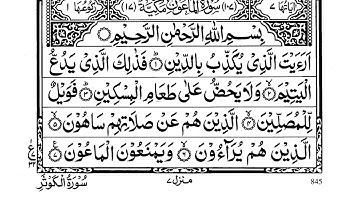 اٰيَاتُهَا ٧ (١٠٧) سُوْرَةُ الْمَاعُوْنِ مَكِّيَّةٌ (١٧) رُكُوْعُهَا ١
بِسْمِ اللّٰهِ الرَّحْمٰنِ الرَّحِيْمِ
اَرَءَيْتَ الَّذِيْ يُكَذِّبُ بِالدِّيْنِ ۝١ فَذٰلِكَ الَّذِيْ يَدُعُّ
الْيَتِيْمَ ۝٢ وَلَا يَحُضُّ عَلٰى طَعَامِ الْمِسْكِيْنِ ۝٣ فَوَيْلٌ
لِّلْمُصَلِّيْنَ ۝٤ الَّذِيْنَ هُمْ عَنْ صَلَاتِهِمْ سَاهُوْنَ ۝٥
الَّذِيْنَ هُمْ يُرَآءُوْنَ ۝٦ وَيَمْنَعُوْنَ الْمَاعُوْنَ ۝٧
سُوْرَةُ الْكَوْثَرِ منزل ٧ 845